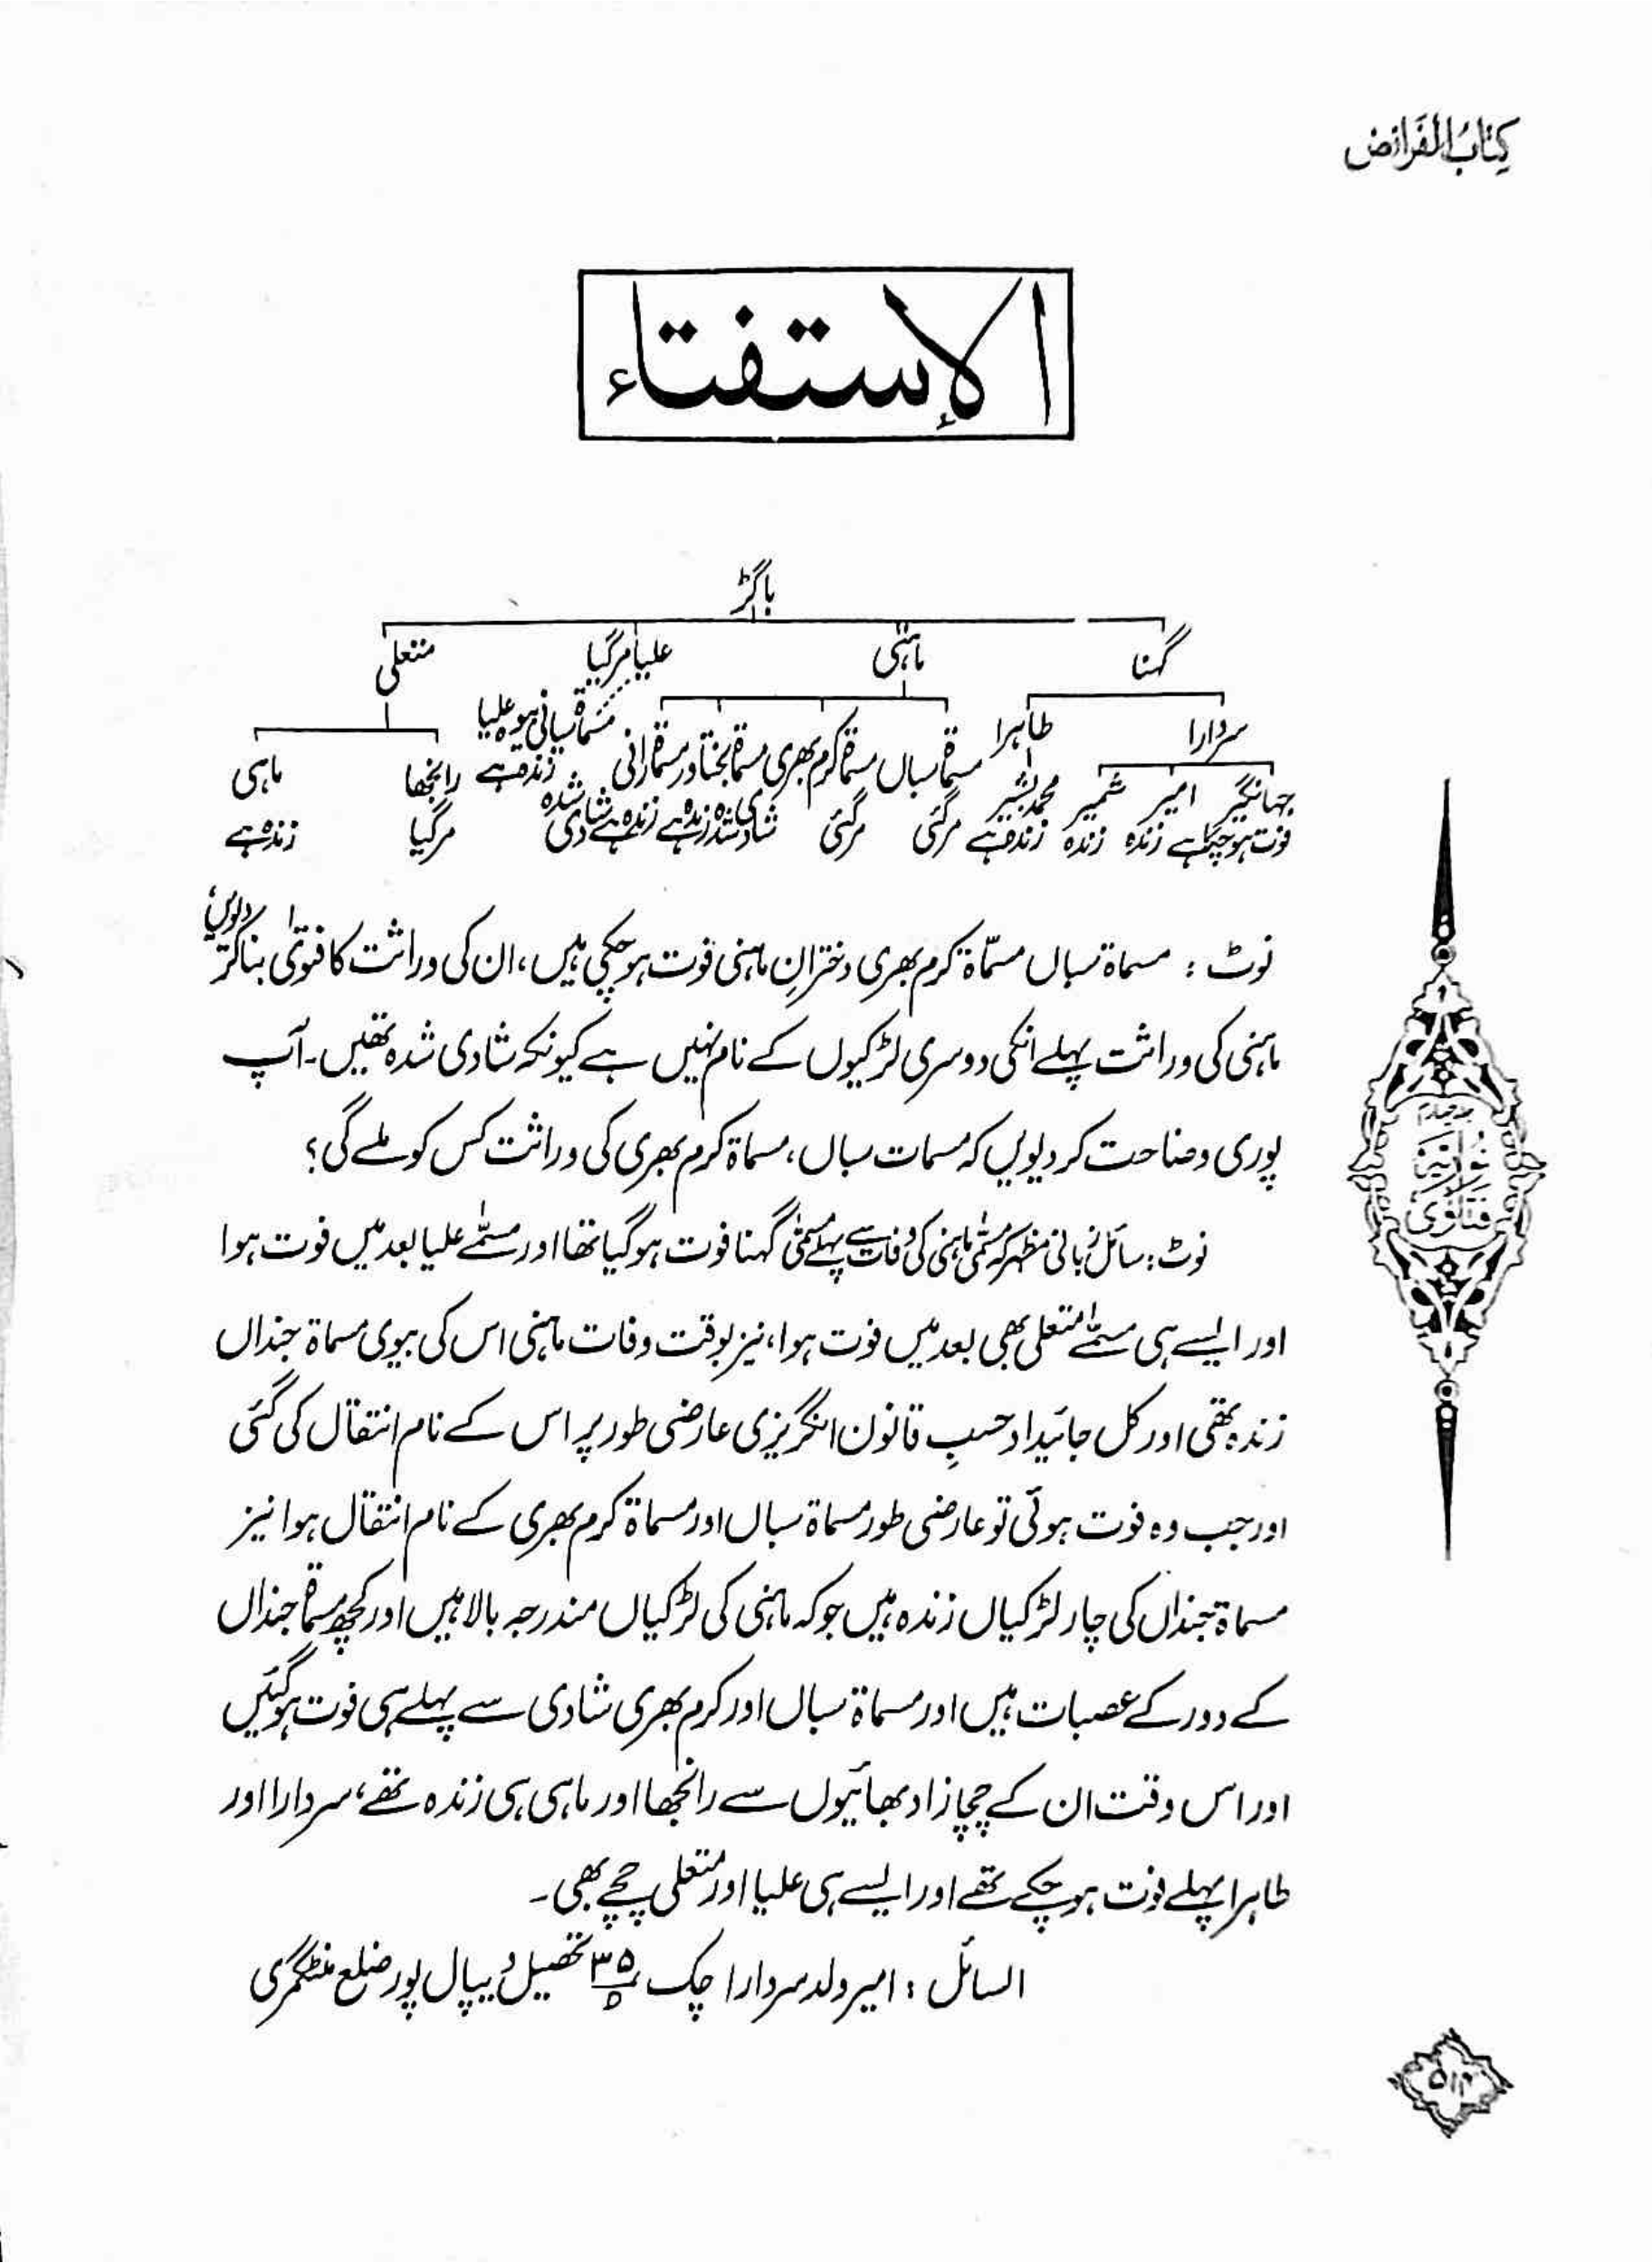 کِتَابُ الفَرائض
الإستفتاء
باگڑ
گہنا ماہنی علیا مرگیا متعلی
سردارا طاہرا مسماۃ سباں مسماۃ کرم بھری مسماۃ بختاور مسماۃ رانی مسماۃ سیانی بیوہ علیا زندہ ہے رانجھا ماہی
جہانگیر امیر شمیر محمد بشیر
فوت ہوچکا ہے زندہ زندہ زندہ ہے مرگئی مرگئی شادی شدہ زندہ ہے زندہ ہے شادی شدہ مرگیا زندہ ہے
نوٹ : مسماۃ سباں مسمّاۃ کرم بھری دخترانِ ماہنی فوت ہوچکی ہیں، ان کی وراثت کا فتویٰ بنا کر دیویں،
ماہنی کی وراثت پہلے انکی دوسری لڑکیوں کے نام نہیں ہے کیونکہ شادی شدہ تھیں۔ آپ
پوری وضاحت کر دیویں کہ مسمات سباں، مسماۃ کرم بھری کی وراثت کس کو ملے گی؟
نوٹ : سائل زبانی مظہر کہ مسمّٰی ماہنی کی وفات سے پہلے مسمّٰی گہنا فوت ہوگیا تھا اور مسمّٰے علیا بعد میں فوت ہوا
اور ایسے ہی مسمّٰے متعلی بھی بعد میں فوت ہوا، نیز بوقت وفات ماہنی اس کی بیوی مسماۃ جنداں
زندہ تھی اور کل جائیداد حسبِ قانون انگریزی عارضی طور پر اس کے نام انتقال کی گئی
اور جب وہ فوت ہوئی تو عارضی طور مسماۃ سباں اور مسماۃ کرم بھری کے نام انتقال ہوا نیز
مسماۃ جنداں کی چار لڑکیاں زندہ ہیں جو کہ ماہنی کی لڑکیاں مندرجہ بالا ہیں اور کچھ مسماۃ جنداں
کے دور کے عصبات ہیں اور مسماۃ سباں اور کرم بھری شادی سے پہلے ہی فوت ہوگئیں
اور اس وقت ان کے چچا زاد بھائیوں سے رانجھا اور ماہی ہی زندہ تھے، سردارا اور
طاہرا پہلے فوت ہوچکے تھے اور ایسے ہی علیا اور متعلی چچے بھی۔
السائل : امیر ولد سردارا چک ۳۵/۵ تحصیل دیپال پور ضلع منٹگمری
جلد چہارم
فتاویٰ نوریہ
۵۱۴